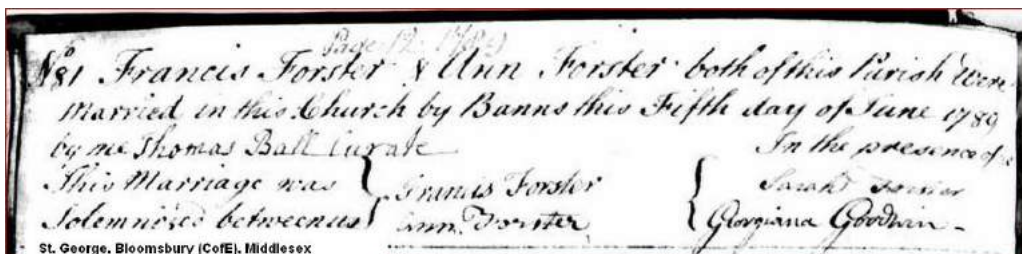 Page 12. 1789
No 81 Francis Forster & Ann Forster both of this Parish Were
Married in this Church by Banns this Fifth day of June 1789
by me Thomas Ball Curate In the presence of us
This Marriage was Francis Forster Sarah
Solemnized between us Ann Forster Georgiana Goodwin
St. George, Bloomsbury (CofE), Middlesex